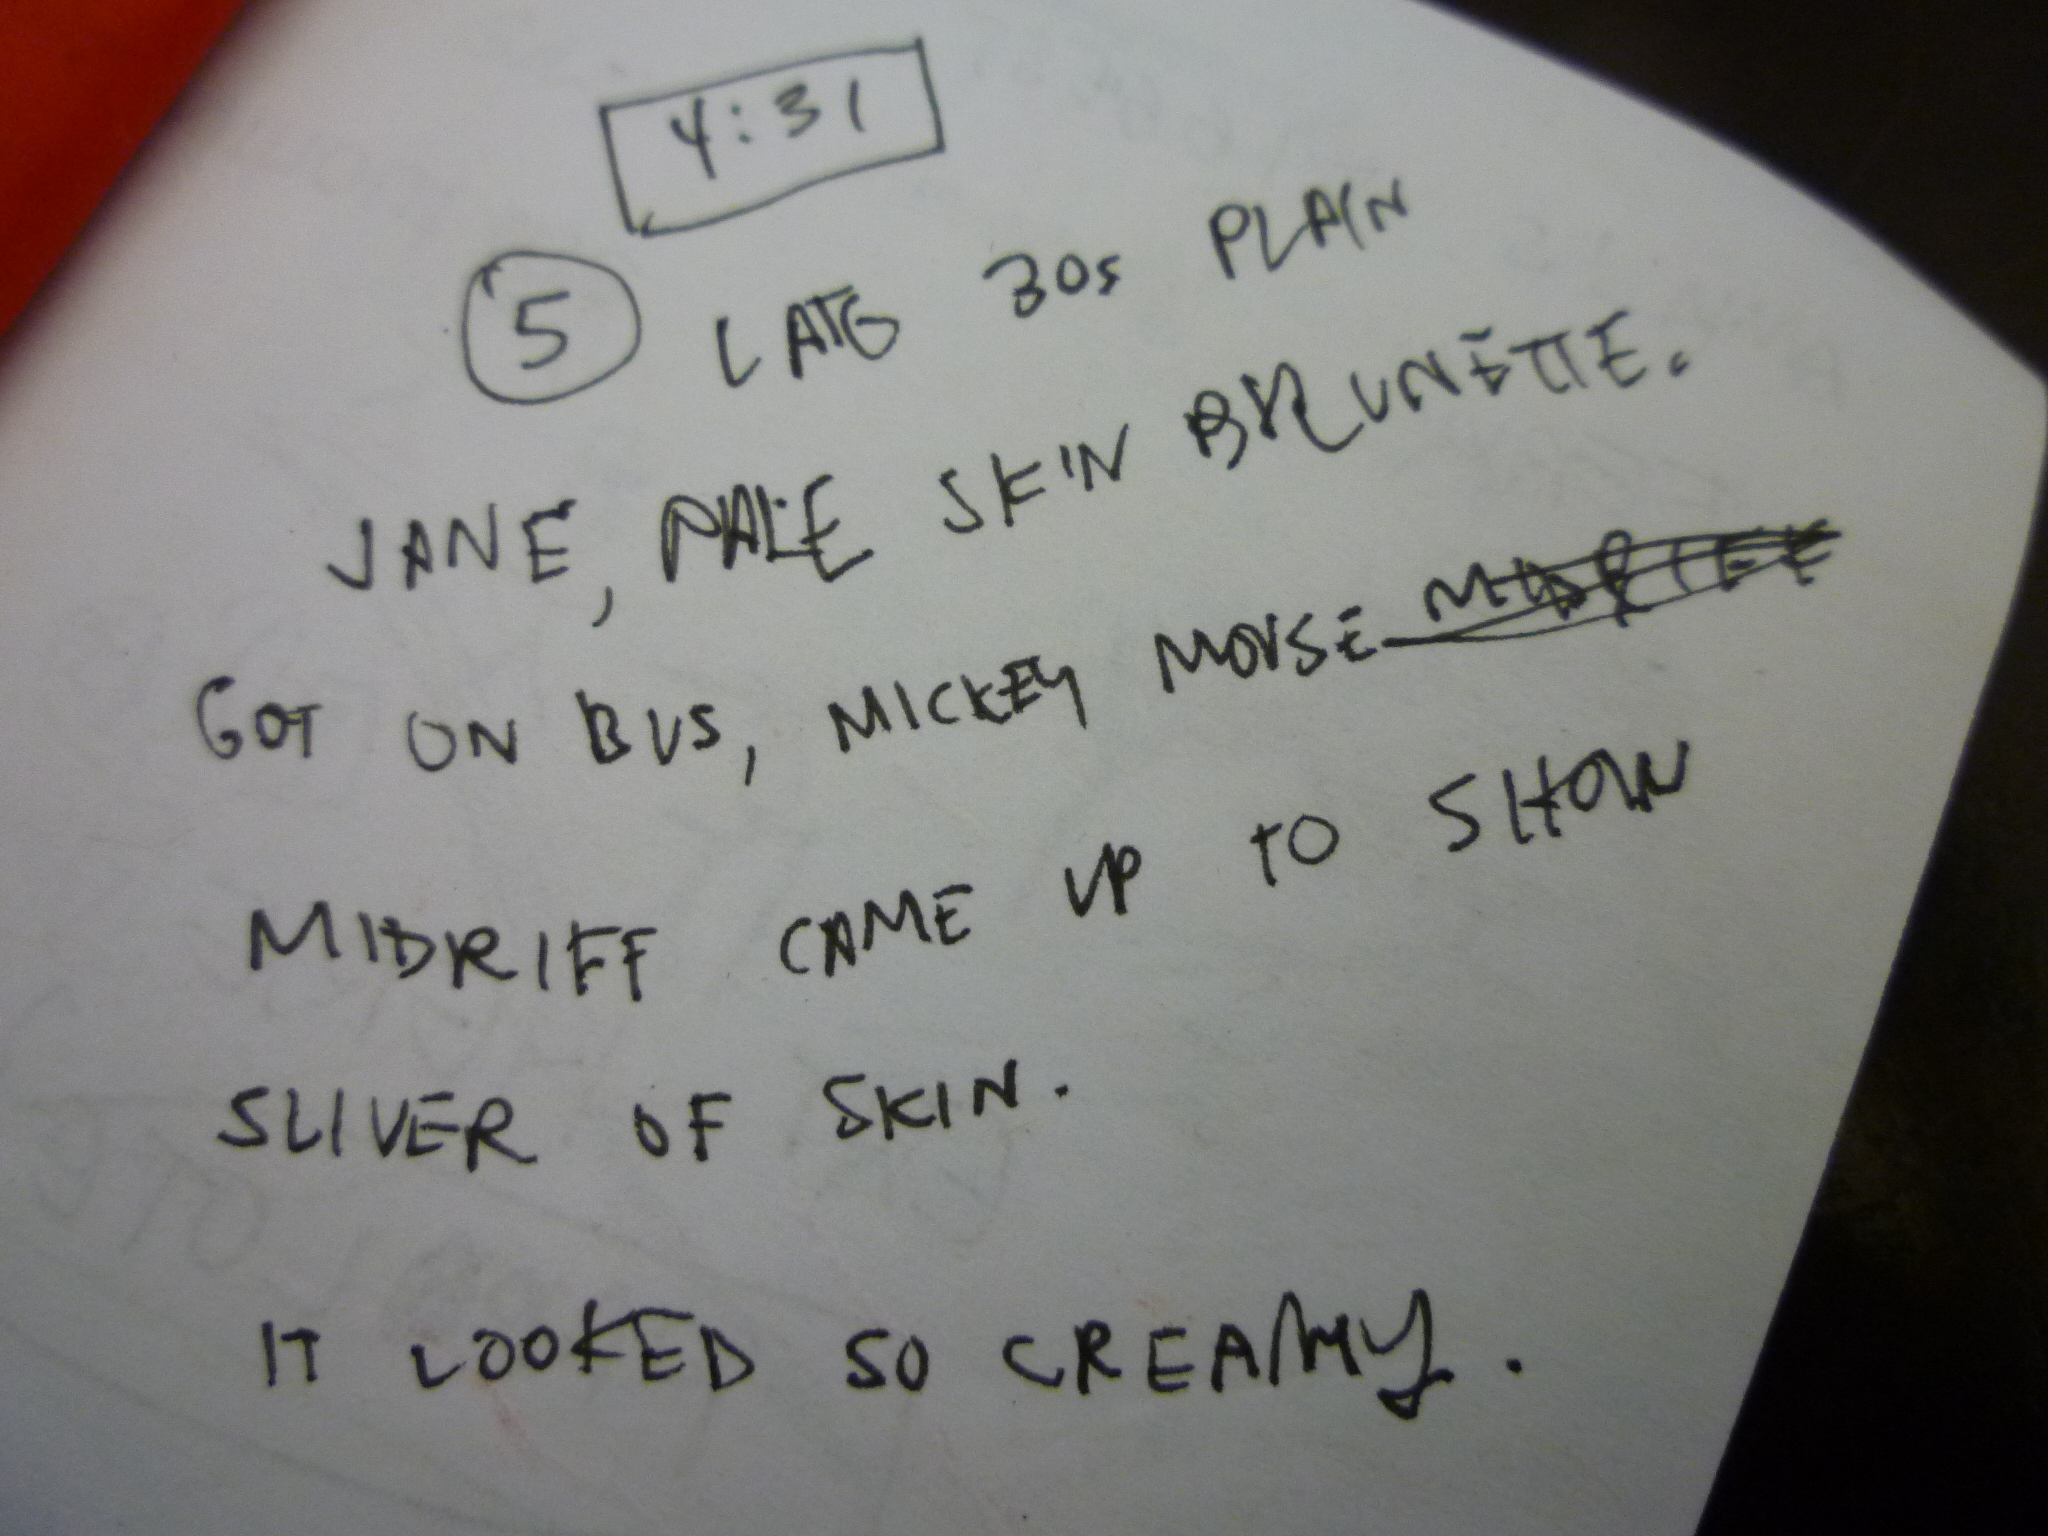 4:31
5 LATE 30s PLAIN
JANE, PALE SKIN BRUNETTE.
GOT ON BUS, MICKEY MOUSE MIDRIFF
MIDRIFF CAME UP TO SHOW
SLIVER OF SKIN.
IT LOOKED SO CREAMY.